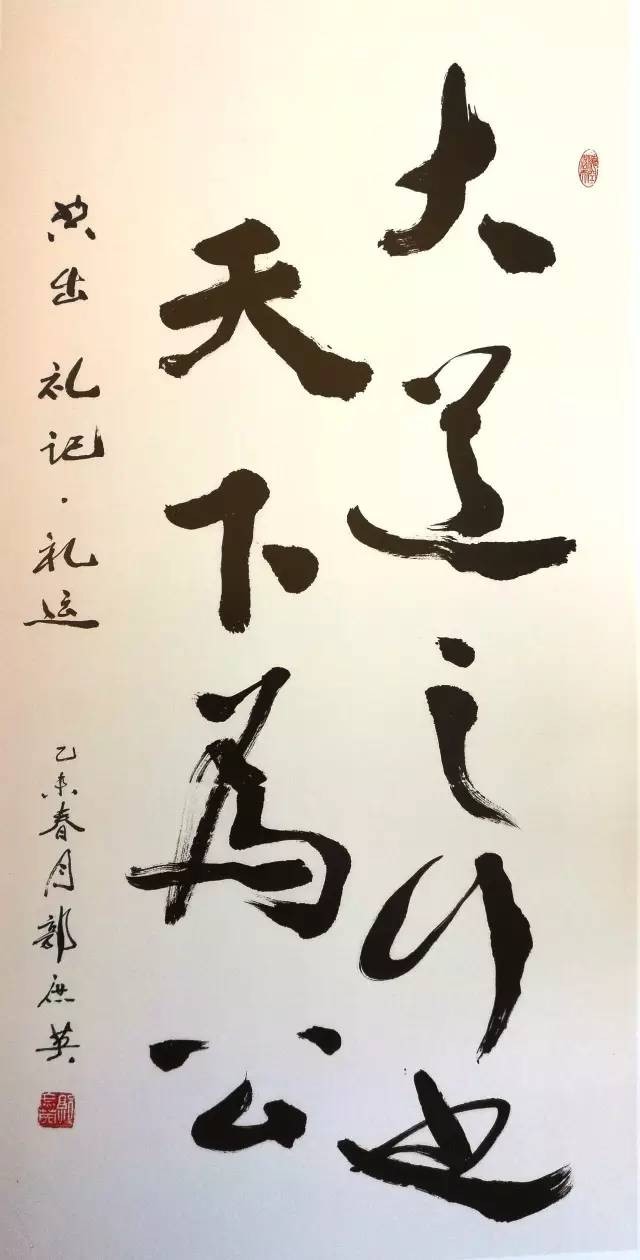 大道之行也
天下为公
典出 礼记·礼运
乙未春月郭庶英